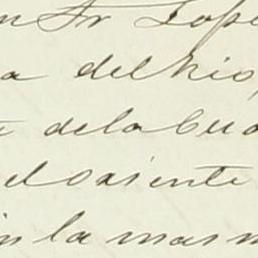 n Sr Lope
a del Rio,
de la Cua
el oariente
in la mas m